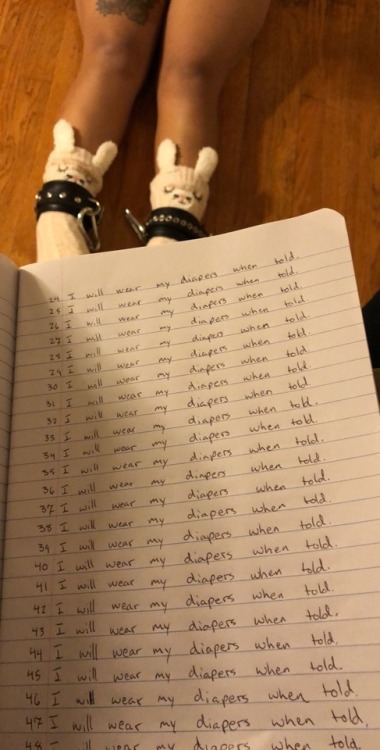 24 I will wear my diapers when told.
25 I will wear my diapers when told.
26 I will wear my diapers when told.
27 I will wear my diapers when told.
28 I will wear my diapers when told.
29 I will wear my diapers when told.
30 I will wear my diapers when told.
31 I will wear my diapers when told.
32 I will wear my diapers when told.
33 I will wear my diapers when told.
34 I will wear my diapers when told.
35 I will wear my diapers when told.
36 I will wear my diapers when told.
37 I will wear my diapers when told.
38 I will wear my diapers when told.
39 I will wear my diapers when told.
40 I will wear my diapers when told.
41 I will wear my diapers when told.
42 I will wear my diapers when told.
43 I will wear my diapers when told.
44 I will wear my diapers when told.
45 I will wear my diapers when told.
46 I will wear my diapers when told.
47 I will wear my diapers when told.
48 I will wear my diapers when told